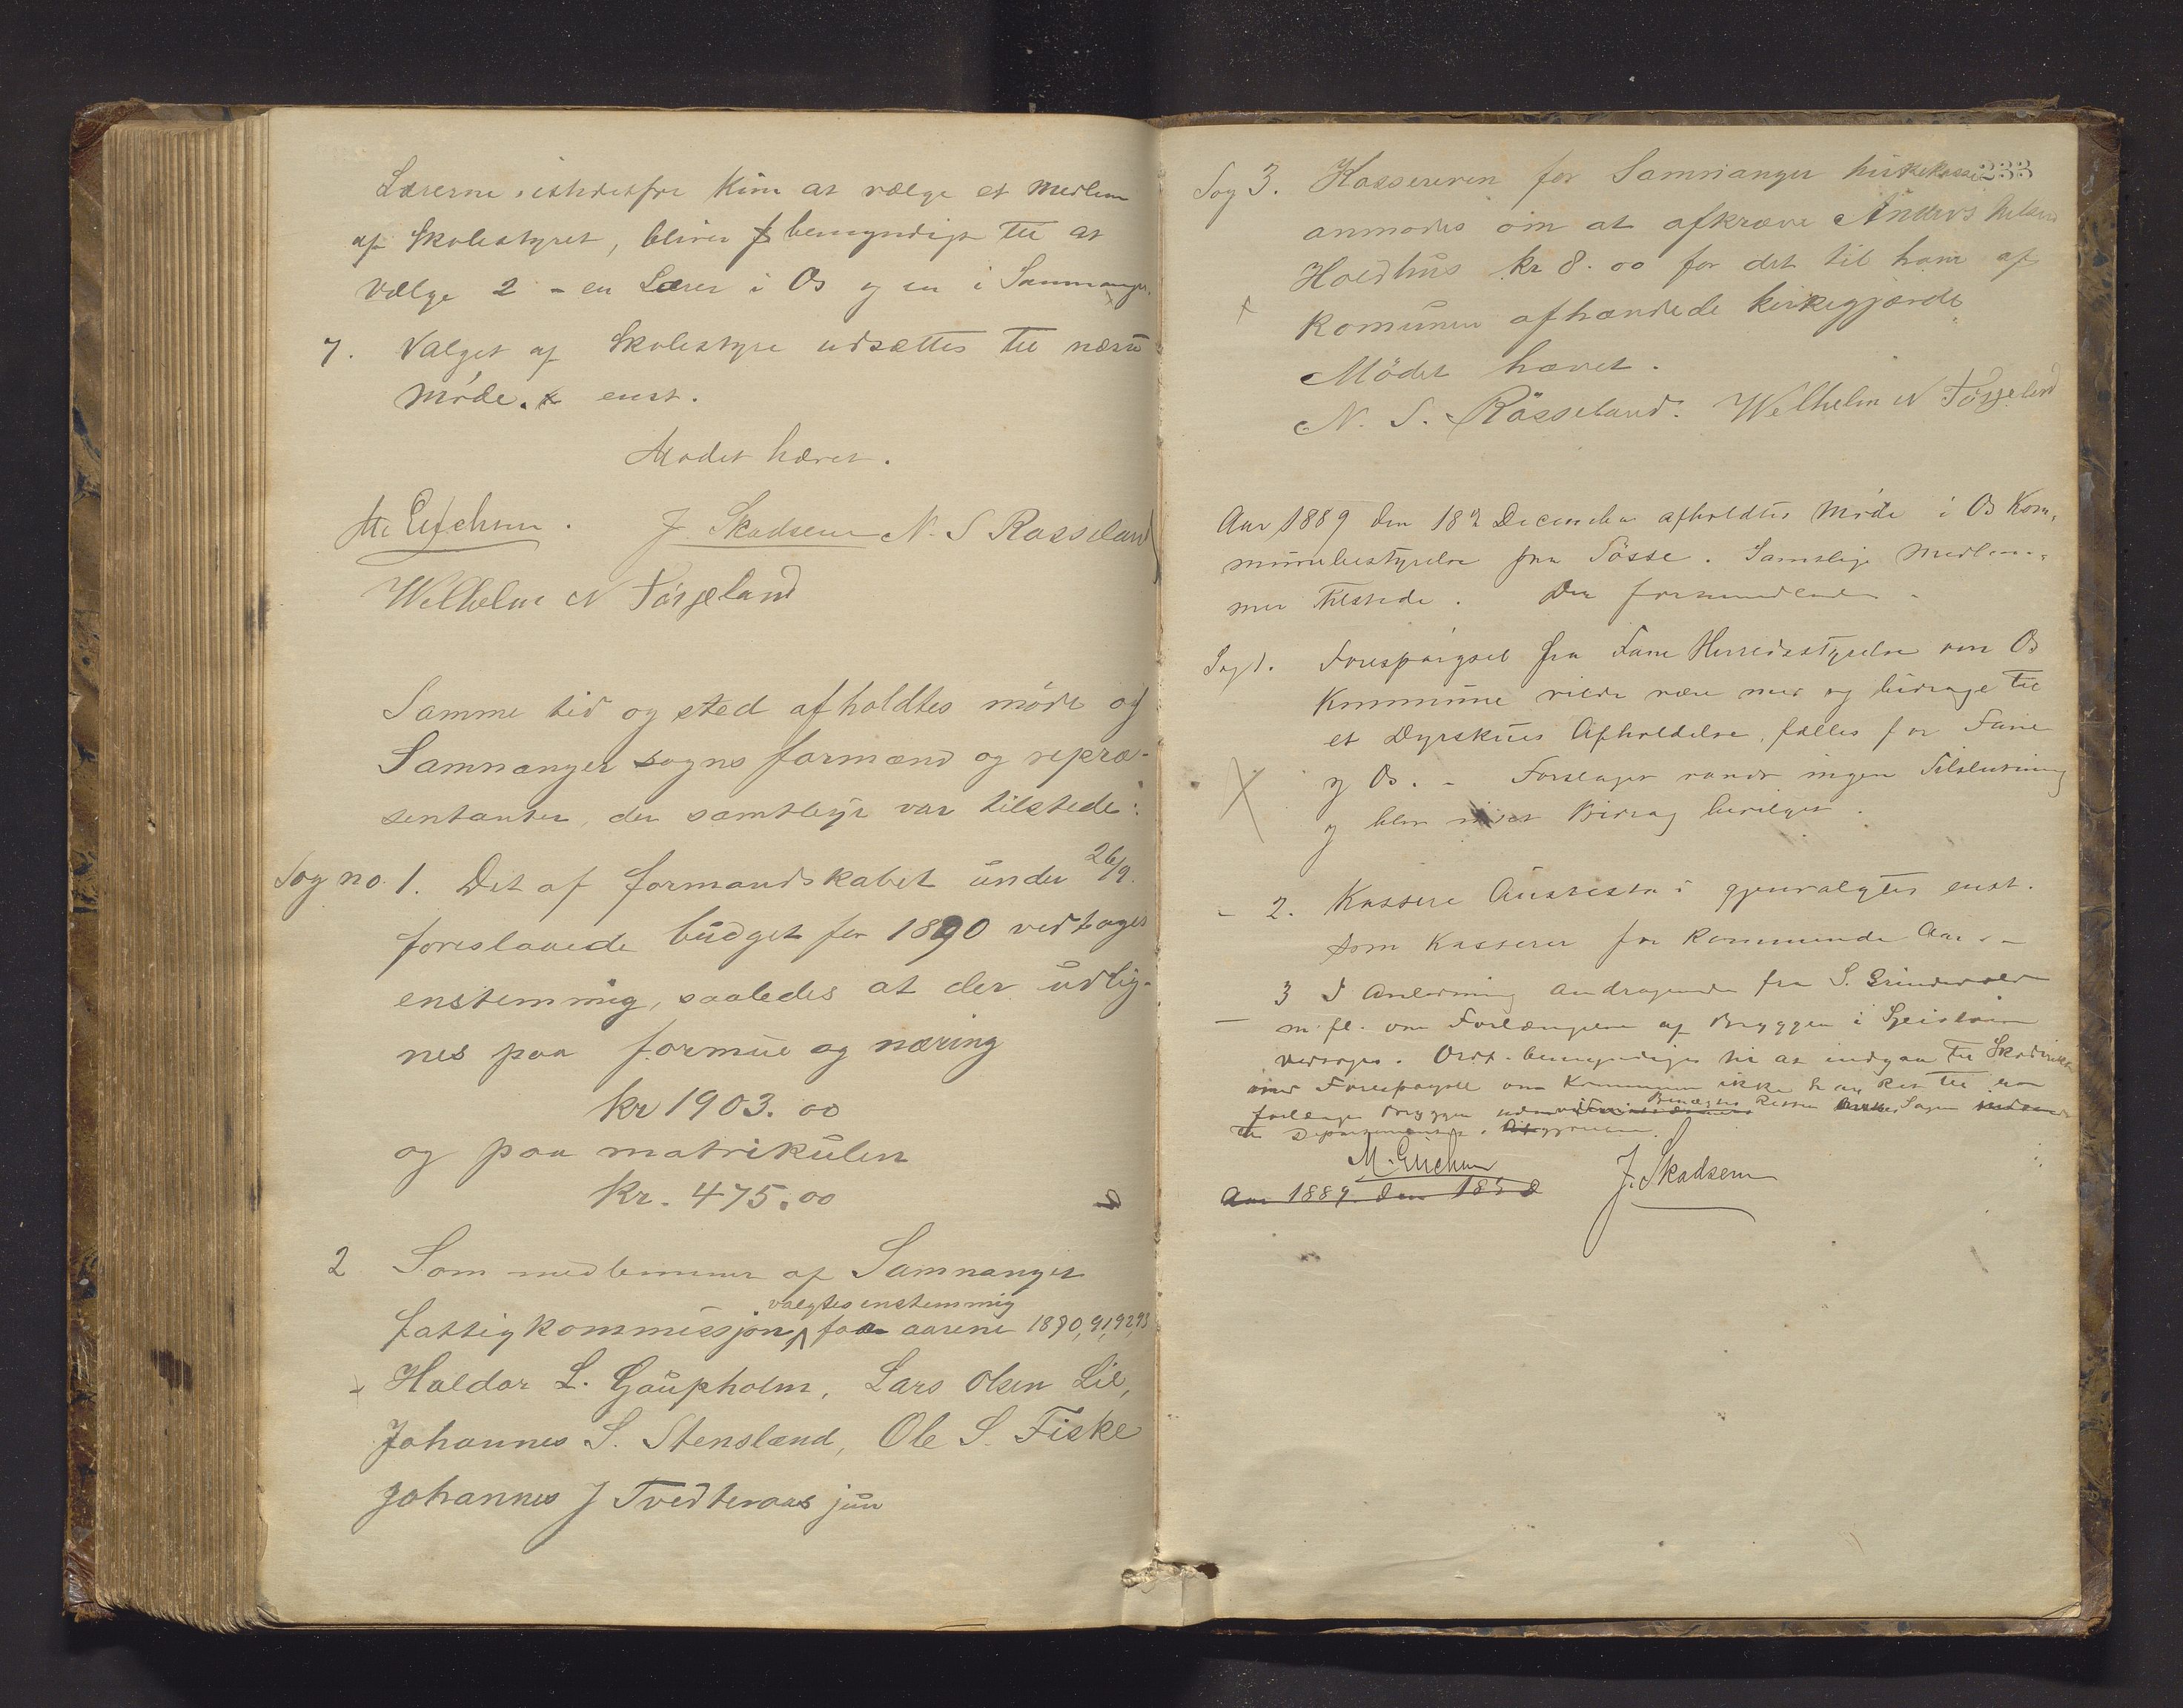 Lærerne istedetfor kun at vælge et Medlem
af Skolestyret, bliver bemyndiget til at
vælge 2 - en Lærer i Os og en i Samnanger.
7. Valget af Skolestyre udsættes til næste
Møde. enst.
Mødet hævet.
J. Skadsem N. S Røsseland
Wilhelm N Tøsseland
Samme tid og sted afholdtes møde af
Samnanger sogns formænd og repræ-
sentanter, der samtlige var tilstede:
Sag no. 1. Det af formandskabet under 26/9.
foreslaaede budget for 1890 vedtages
enstemmig, saaledes at der udlig-
nes paa formue og næring
kr 1903.00
og paa matrikulen
Kr. 475.00
2 Som medlemmer af Samnanger
valgtes enstemmig
fattigkommissjon for aarene 1890, 91, 92, 93
Haldor L. Gaupholm, Lars Olsen Lil,
Johannes S. Stensland, Ole S. Fiske
Johannes J Tvedteraas jun
233
Sag 3. Kassereren for Samnanger kirkekasse
anmodes om at afkræve Anders
Holdhus kr 8.00 for det til ham af
Komunen afhændede kirkegjærde.
Mødet hævet.
N. S. Røsseland. Welhelm N Tøsseland
Aar 1889 den 18de December afholdtes Møde i Os Kom-
munebestyrelse paa Tøsse. Samtlige Medlem-
mer tilstede.
Sag 1. Forespørgsel fra Fane Herredsstyrelse om Os
Kommune vilde være med og bidrage til
et Dyrskues Afholdelse, fælles for Fane
og Os. - Forslaget vandt ingen Tilslutning
og blev intet Bidrag bevilget.
- 2. Kasserer gjenvalgtes enst.
som Kasserer for kommende Aar. -
3 I Anledning Andragende fra S. Grindevold
- m. fl. om Forlængelse af Bryggen i
Ordf. bemyndiges til at indgaa til
med Forespørgsel om Kommunen ikke har Ret til at
forlænge Bryggen Benægtes Retten Sagen
til Departementets Afgjørelse.
J. Skadsem
Aar 1889. den 18de D